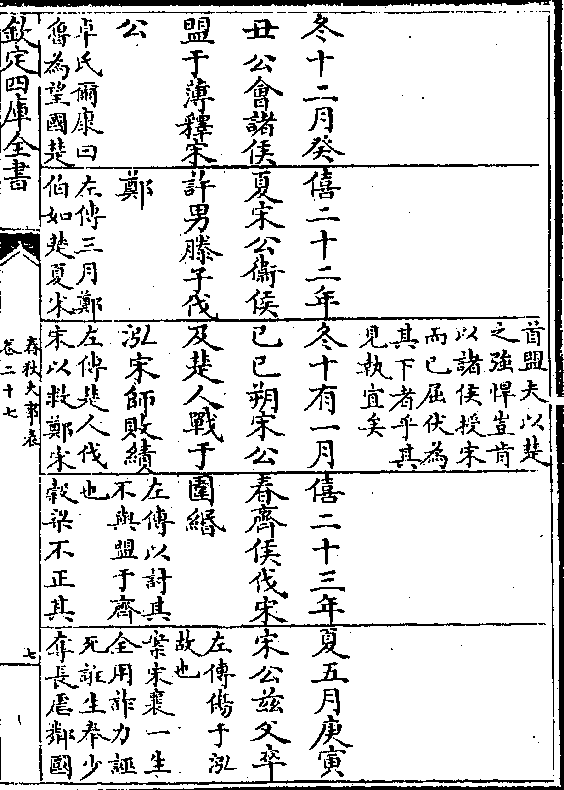 冬十二月癸
丑公會諸侯
盟于薄釋宋
公
卓氏爾康曰
魯為望國楚
僖二十二年
夏宋公衞侯
許男滕子伐
鄭
左傳三月鄭
伯如楚夏宋
首盟夫以楚
之強悍豈肯
以諸侯授宋
而已屈伏為
其下者乎其
見執宜矣
冬十有一月
己巳朔宋公
及楚人戰于
泓宋師敗績
左傳楚人伐
宋以救鄭宋
僖二十三年
春齊侯伐宋
圍緡
左傳以討其
不與盟于齊
也
穀梁不正其
夏五月庚寅
宋公茲父卒
左傳傷于泓
故也
案宋襄一生
全用詐力誣
死誑生奉少
奪長虐鄰國
欽定四庫全書
春秋大事表
卷二十七
七